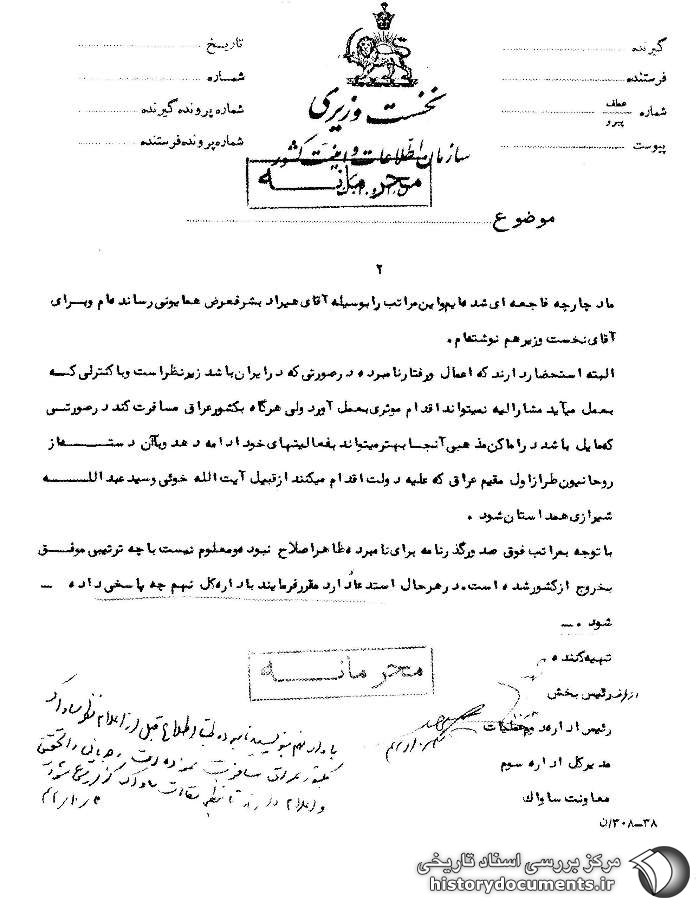 گیرنده
فرستنده
شماره عطف پیرو
پیوست
نخست وزیری
سازمان اطلاعات و امنیت کشور
تاریخ
شماره
شماره پرونده گیرنده
شماره پرونده فرستنده
محرمانه
موضوع
۲
ما دچار چه فاجعه ای شده ایم و این مراتب را بوسیله آقای هیراد بشرفعرض همایونی رسانده ام و برای
آقای نخست وزیر هم نوشته ام .
البته استحضار دارند که اعمال و رفتار نامبرده در صورتی که در ایران باشد زیر نظر است و با کنترلی که
بعمل میآید مشارالیه نمیتواند اقدام موثری بعمل آورد ولی هرگاه بکشور عراق مسافرت کند در صورتی
که مایل باشد در اماکن مذهبی آنجا بهتر میتواند بفعالیتهای خود ادامه دهد و با آن دسته از
روحانیون طراز اول مقیم عراق که علیه دولت اقدام میکنند از قبیل آیت الله خوئی و سید عبدالله
شیرازی همداستان شود .
با توجه بمراتب فوق صدور گذرنامه برای نامبرده ظاهرا صلاح نبوده و معلوم نیست با چه ترتیبی موفق
بخروج از کشور شده است . در هر حال استدعا دارد مقرر فرمایند باداره کل نهم چه پاسخی داده
شود .
محرمانه
تهیه کننده
رئیس بخش
رئیس اداره یکم عملیات
مدیر کل اداره سوم
معاونت ساواک
۳۸-۳۰۸/ن
مرکز بررسی اسناد تاریخی
historydocuments.ir